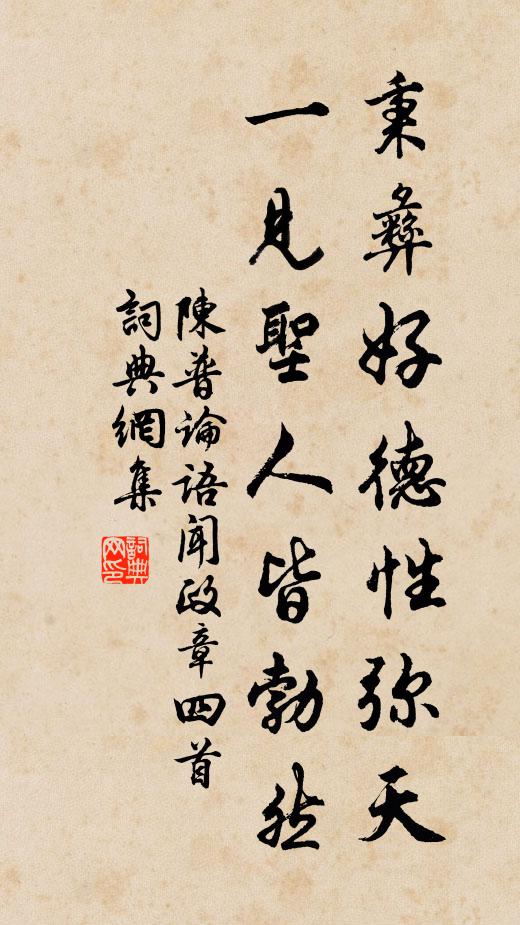 秉彝好德性弥天
一見聖人皆勃然
陳普論語聞政章四首
詞典網集
詞典網印